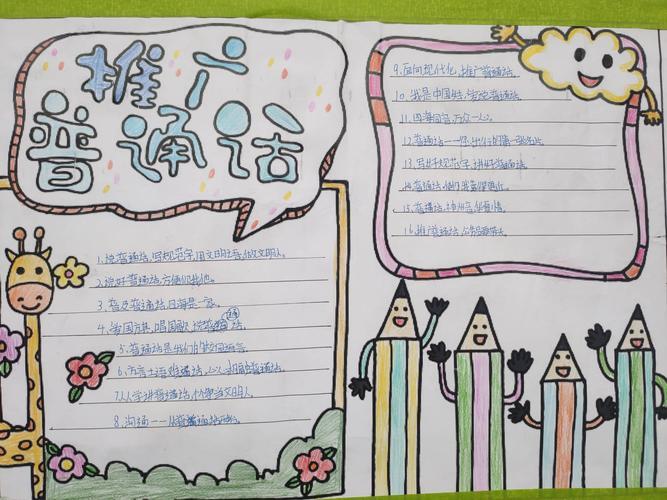 推广
普通话
1、说普通话,写规范字,用文明语,做文明人。
2、说好普通话,方便你我他。
3、普及普通话,四海是一家。
4、爱国旗,唱国歌,说普通话。
5、普通话是我们的校园语言。
6、方言土语难沟通,心心相印普通话。
7、人人学讲普通话,个个争当文明人。
8、沟通——从普通话开始。
9、面向现代化,推广普通话。
10、我是中国娃,爱说普通话。
11、四海同音,万众一心。
12、普通话——你
13、写好规范字,讲好普通话。
14、普通话,
15、普通话,神州音,华夏情。
16、推广普通话,